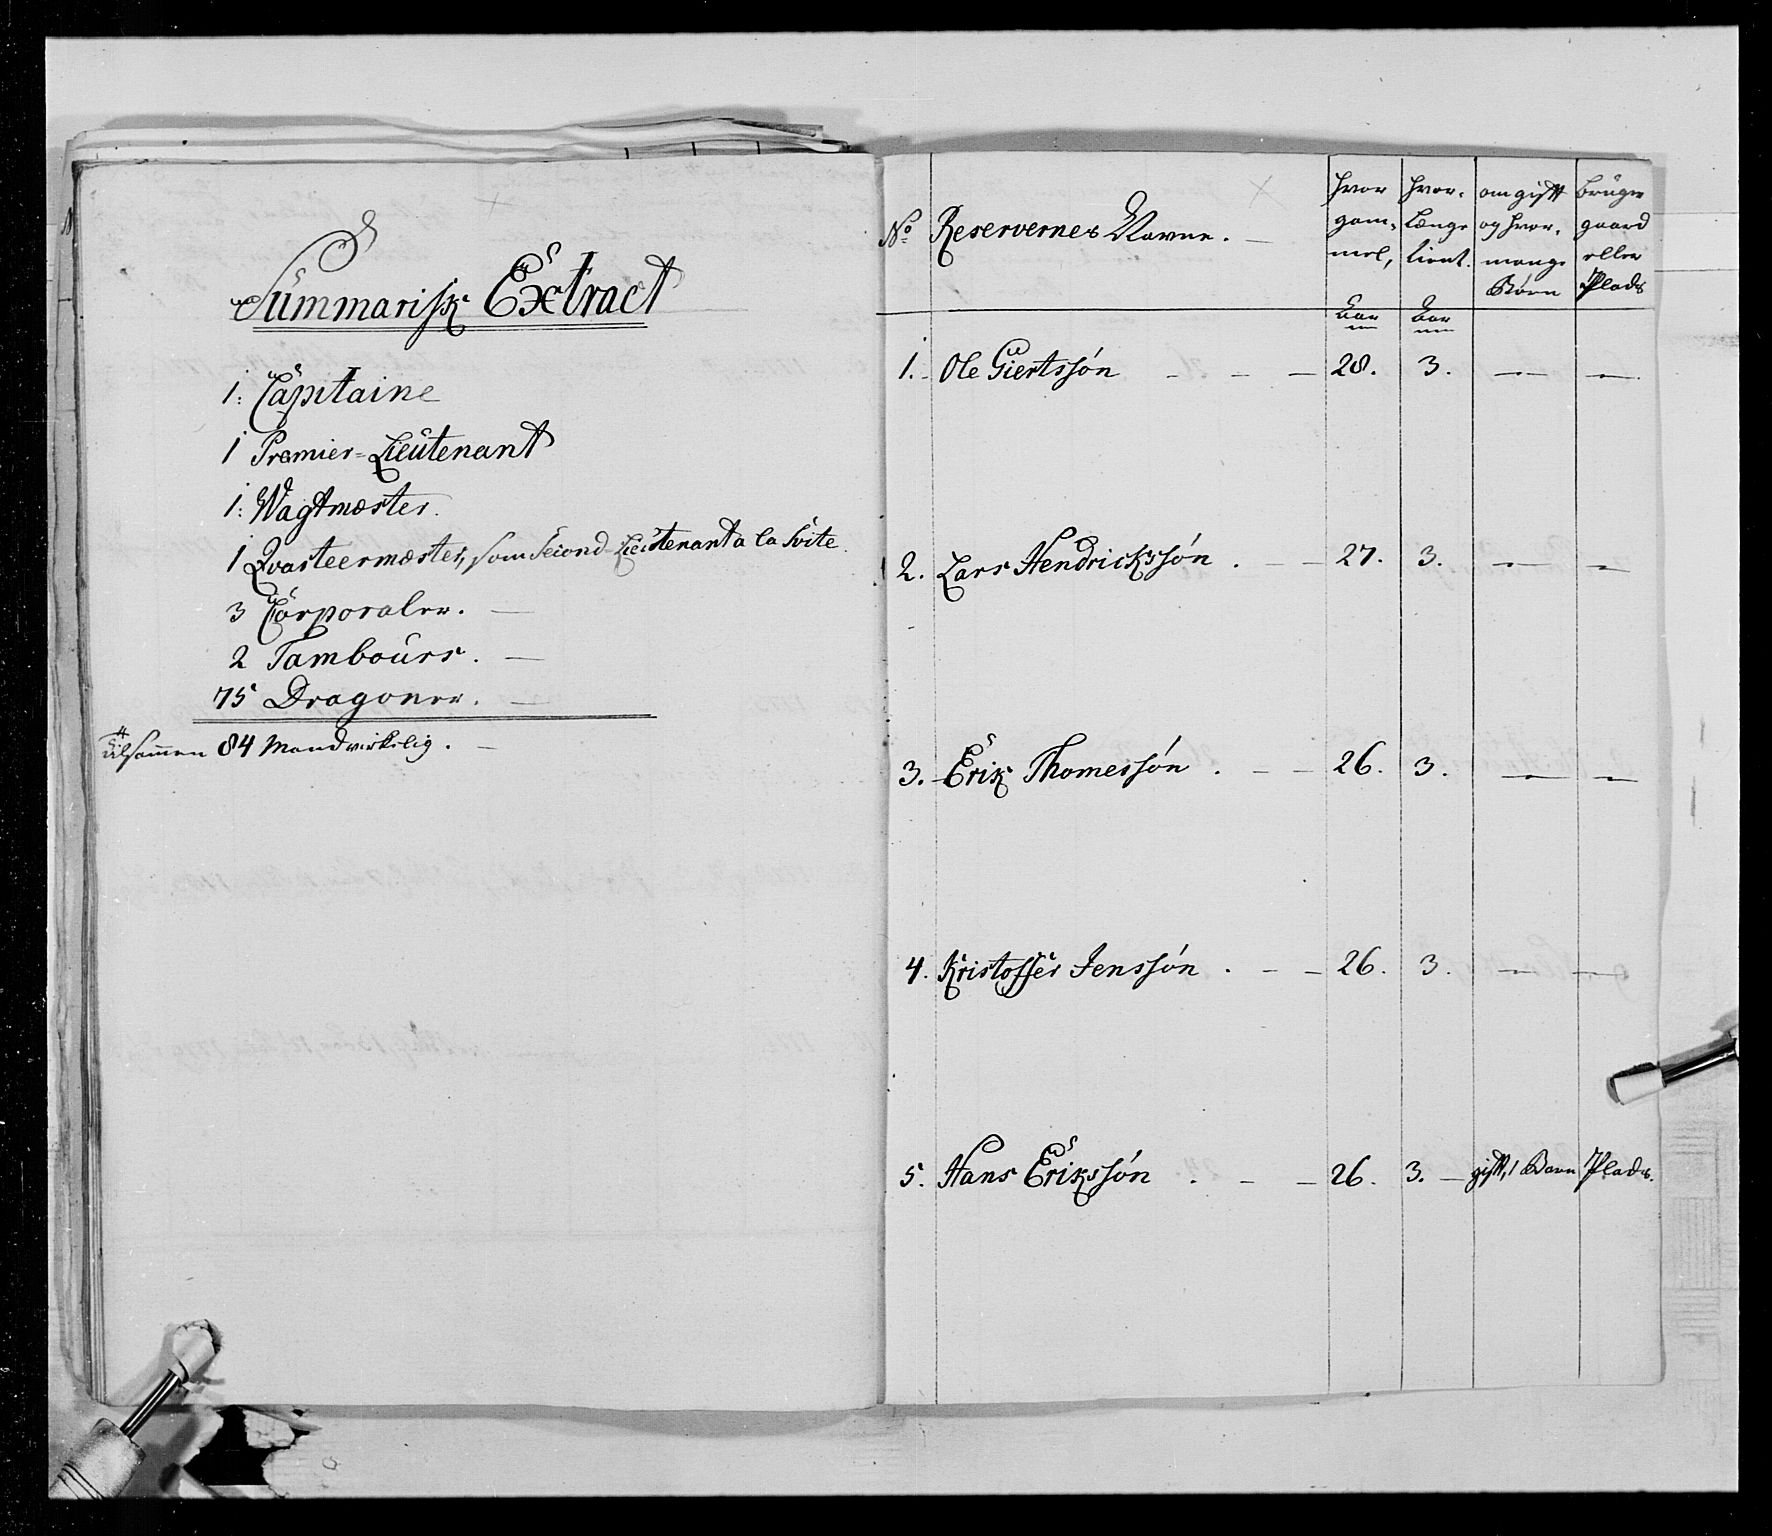 Summarisk Extract
1: Capitaine
1 Premier-Lieutenant
1: Wagtmæster.
1 Qvarteermæster, som Second-Lieutenant a la Svite.
3 Corporaler.
2 Tambours.
75 Dragoner.
tilsammen 84 Mand virkelig.
No Reservernes Navne.
hvor gam-mel,
hvor-længe tient.
om gift og hvor-mange Børn
Bruger gaard eller Plads
Aar Aar
1. Ole Giertssøn 28. 3. — —
2. Lars Hendrickssøn. 27. 3. — —
3. Erik Thomessøn. 26. 3. — —
4. Kristoffer Jenssøn. 26. 3. — —
5. Hans Erikssøn. 26. 3. gift, 1 Barn Plads.